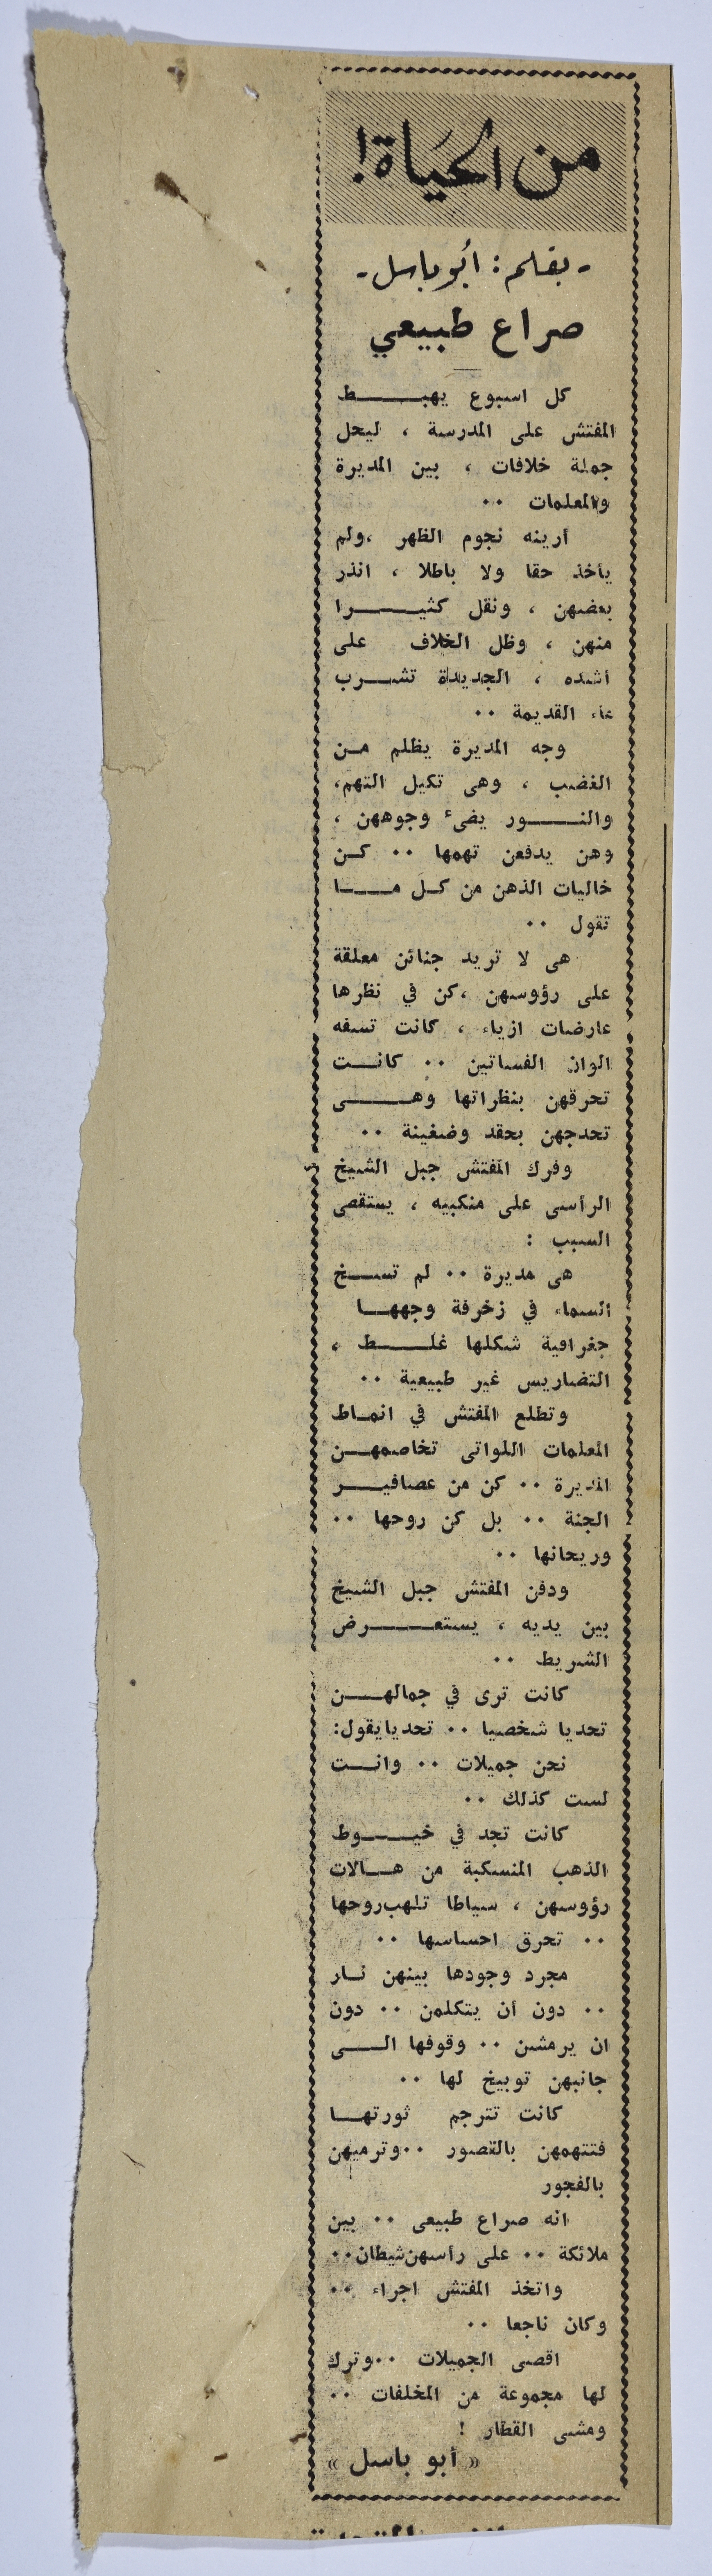 من الحياة!
- بقلم: أبو باسل -
صراع طبيعي
كل اسبوع يهبــــط
المفتش على المدرسة ، ليحل
جملة خلافات ، بين المديرة
والمعلمات ..
أرينه نجوم الظهر ،ولم
يأخذ حقا ولا باطلا ، انذر
بعضهن ، ونقل كثيــــرا
منهن ، وظل الخلاف على
أشده ، الجديدة تشــرب
ماء القديمة ..
وجه المديرة يظلم مـن
الغضب ، وهى تكيل التهم،
والنــــور يضىء وجوههن ،
وهن يدفعن تهمها .. كـن
خاليات الذهن من كـل مــا
تقول ..
هى لا تريد جنائن معلقة
على رؤوسهن ،كن في نظرها
عارضات ازياء ، كانت تسفه
الوان الفساتين .. كانــت
تحرقهن بنظراتها وهــــى
تحدجهن بحقد وضغينة ..
وفرك المفتش جبل الشيخ
الرأسى على منكبيه ، يستقصى
السبب :
هى مديرة .. لم تســخ
السماء في زخرفة وجههــا
جغرافية شكلها غلــــط ،
التضاريس غير طبيعية ..
وتطلع المفتش في انمـاط
المعلمات اللواتى تخاصمهـن
المديرة .. كن من عصافيــر
الجنة .. بل كن روحها ..
وريحانها ..
ودفن المفتش جبل الشيخ
بين يديه ، يستعــــرض
الشريط ..
كانت ترى في جمالهــن
تحديا شخصيا .. تحديايقول:
نحن جميلات .. وانــت
لست كذلك ..
كانت تجد في خيـــوط
الذهب المنسكبة من هــالات
رؤوسهن ، سياطا تلهب روحها
.. تحرق احساسها ..
مجرد وجودها بينهن نـار
.. دون أن يتكلمن .. دون
ان يرمشن .. وقوفها الـــى
جانبهن توبيخ لها ..
كانت تترجم ثورتهــا
فتتهمهن بالقصور ..وترميهن
بالفجور
انه صراع طبيعى .. بين
ملائكة .. على رأسهن شيطان..
واتخذ المفتش اجراء ..
وكان ناجعا ..
اقصى الجميلات ..وترك
لها مجموعة من المخلفات ..
ومشى القطار !
« أبو باسل »